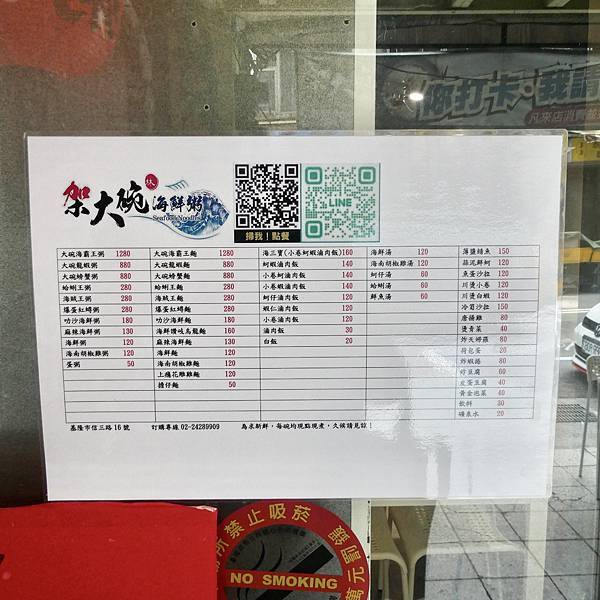 架大碗 海鮮粥
Seafood Noodles
掃我！點餐
LINE
大碗海霸王粥 1280
大碗龍蝦粥 880
大碗螃蟹粥 880
蛤蜊王粥 280
海賊王粥 280
爆蛋紅蟳粥 280
叻沙海鮮粥 180
麻辣海鮮粥 130
海鮮粥 120
海南胡椒雞粥 120
蛋粥 50
大碗海霸王麵 1280
大碗龍蝦麵 880
大碗螃蟹麵 880
蛤蜊王麵 280
海賊王麵 280
爆蛋紅蟳麵 280
叻沙海鮮麵 180
海鮮讚岐烏龍麵 160
麻辣海鮮麵 130
海鮮麵 120
海南胡椒雞麵 120
上癮花雕雞麵 120
擔仔麵 50
海三寶(小卷蚵蝦滷肉飯) 160
蚵蝦滷肉飯 140
小卷蚵滷肉飯 140
小卷蝦滷肉飯 140
蚵仔滷肉飯 120
蝦仁滷肉飯 120
小卷滷肉飯 120
滷肉飯 30
白飯 20
海鮮湯 120
海南胡椒雞湯 120
蚵仔湯 60
蛤蜊湯 60
鮮魚湯 60
薄鹽鯖魚 150
蒜泥鮮蚵 120
魚蛋沙拉 120
川燙小卷 120
川燙白蝦 120
冷筍沙拉 150
唐揚雞 80
燙青菜 40
炸天婦羅 80
荷包蛋 20
炸蝦捲 80
60
皮蛋豆腐 40
黃金泡菜 40
飲料 30
礦泉水 20
基隆市信三路16號 訂購專線 02-24289909 為求新鮮，每碗均現點現煮，久候請見諒！
你打卡·我請
凡來店消費
所禁止吸菸
NO SMOKING
萬元罰鍰